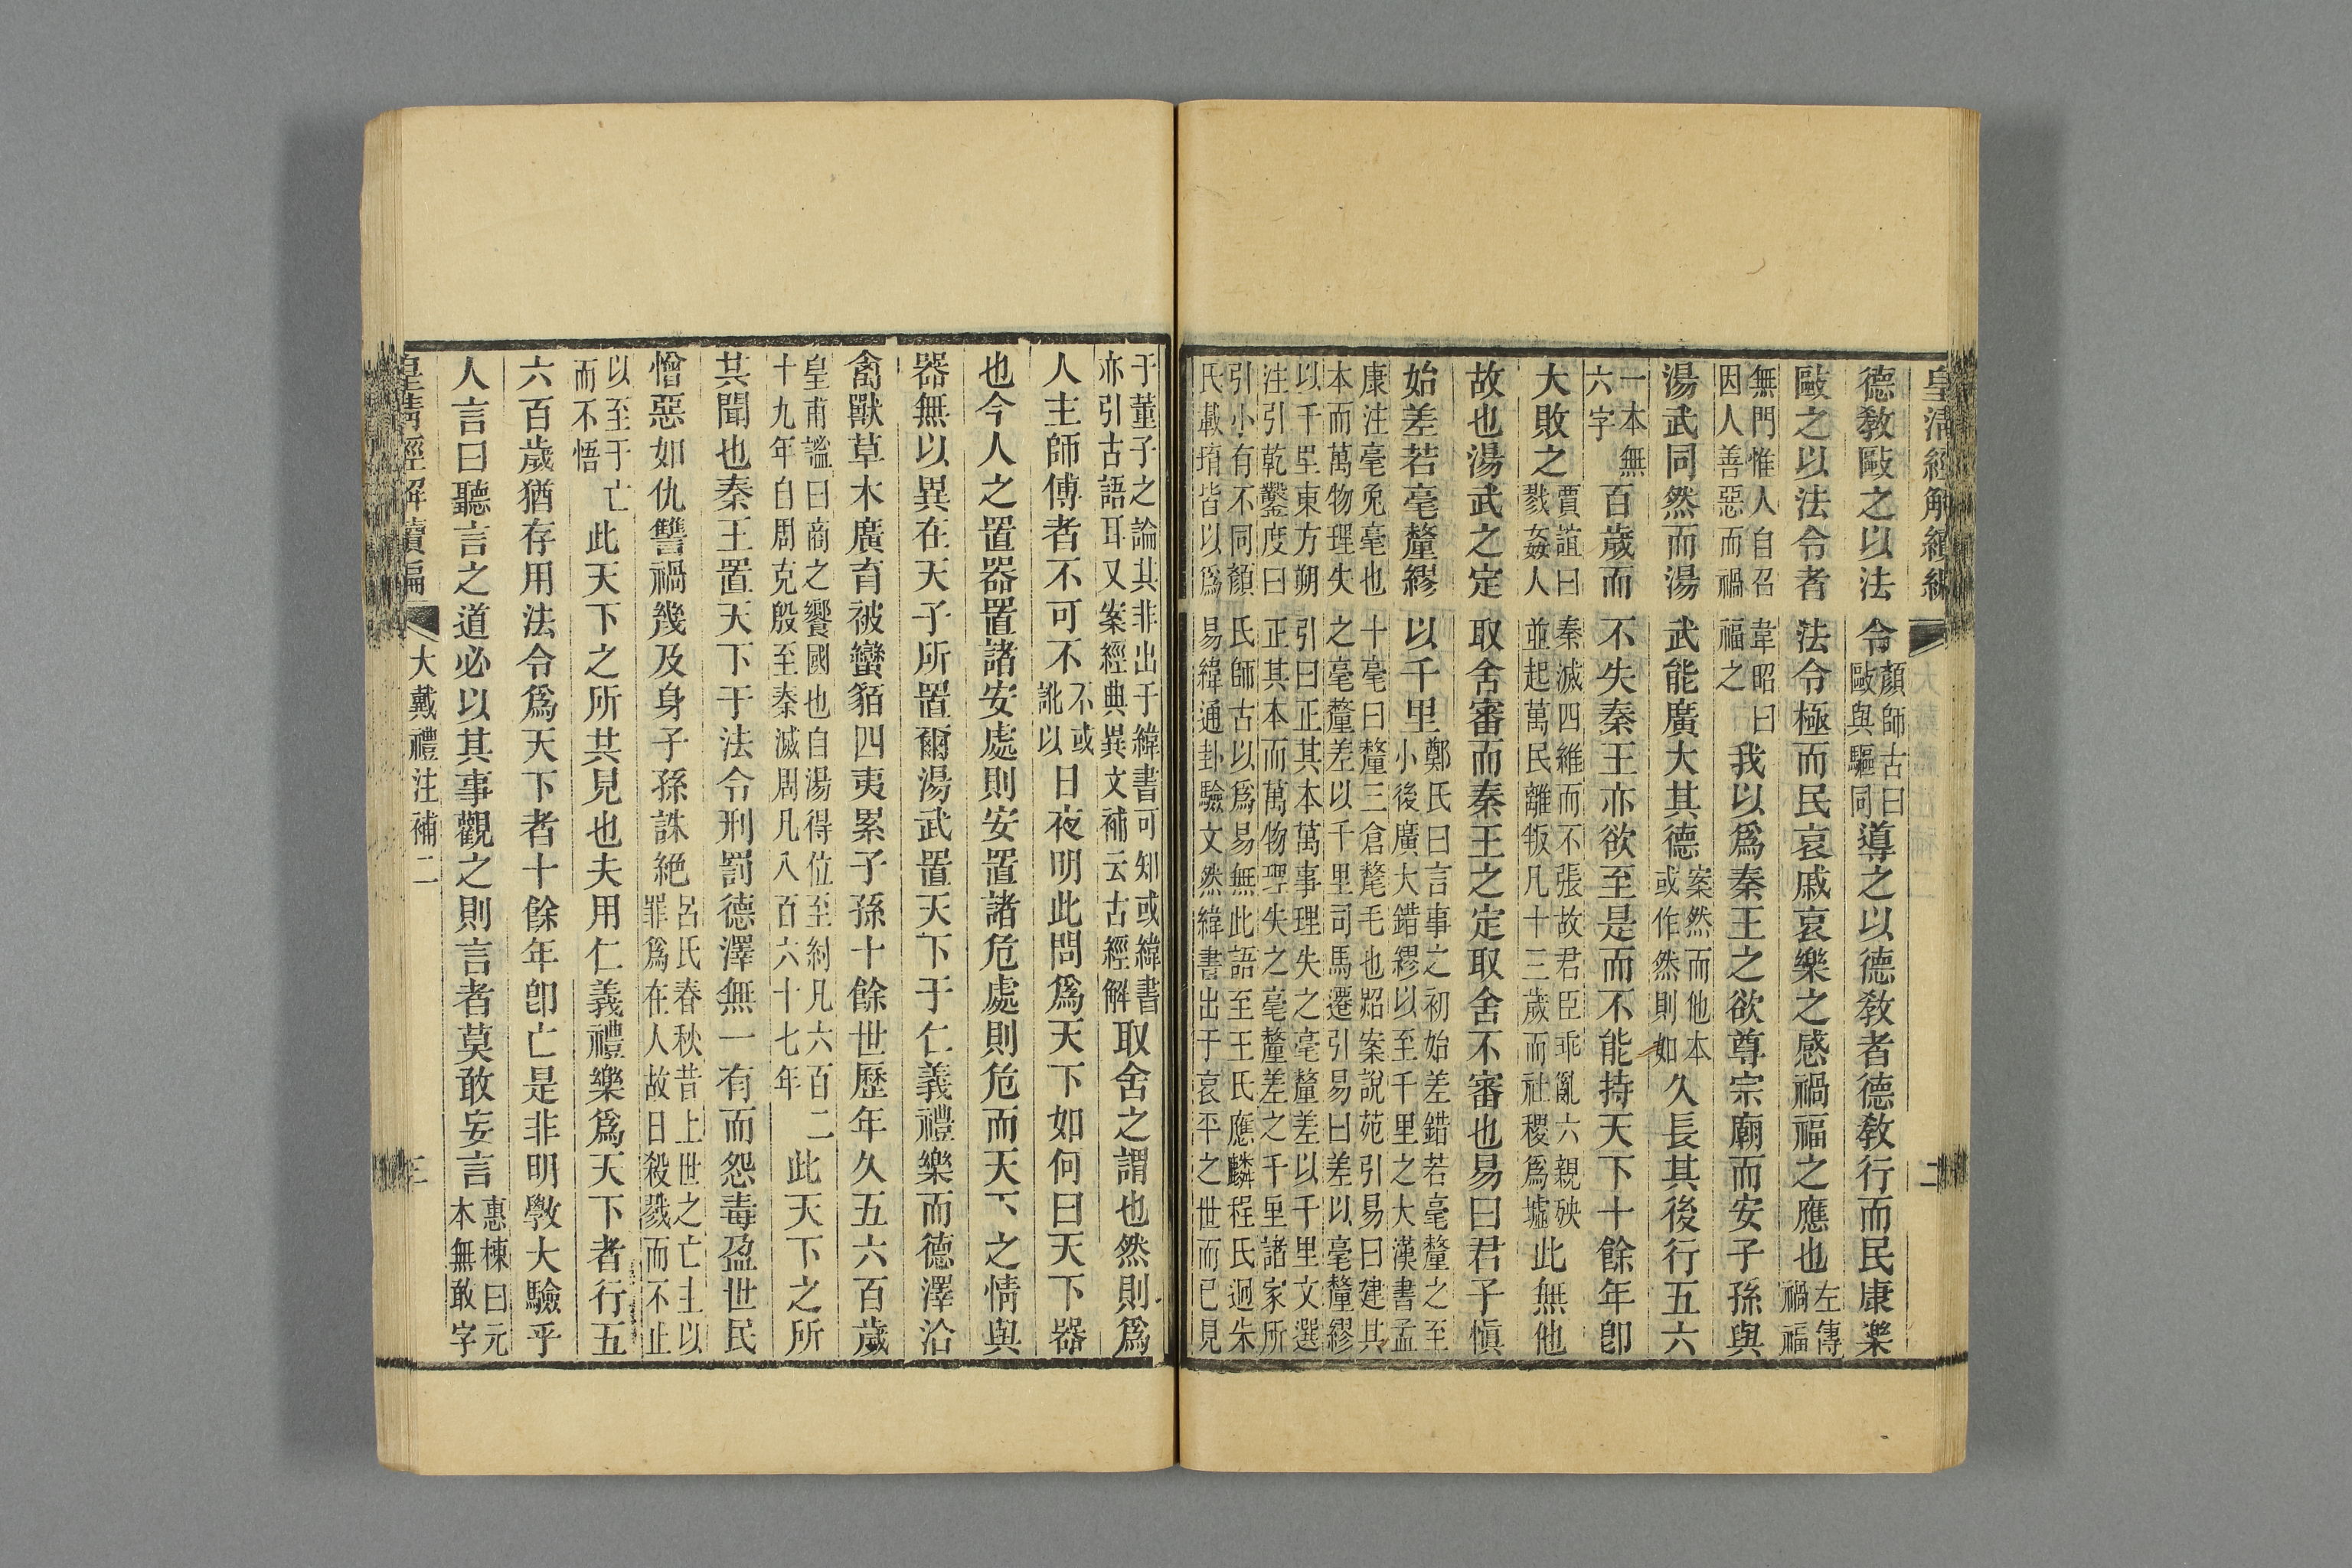 皇清經解續編 二
德敎敺之以法令顏師古曰敺與驅同導之以德敎者德敎行而民康樂
敺之以法令者法令極而民哀戚哀樂之感禍福之應也左傳禍福
無門惟人自召韋昭曰因人善惡而禍福之我以爲秦王之欲尊宗廟而安子孫與
湯武同然而湯武能廣大其德案然而他本或作然則如久長其後行五六
一本無六字百歲而不失秦王亦欲至是而不能持天下十餘年卽
大敗之賈誼曰秦滅四維而不張故君臣乖亂六親殃戮姦人並起萬民離叛凡十三歲而社稷爲墟此無他
故也湯武之定取舍審而秦王之定取舍不審也易曰君子愼
始差若毫釐繆以千里鄭氏曰言事之初始差錯若毫釐之至小後廣大錯繆以至千里之大漢書孟
康注毫兔毫也十毫曰釐三倉氂毛也炤案說苑引易曰建其
本而萬物理失之毫釐差以千里司馬遷引易曰差以毫釐繆
以千里東方朔引曰正其本萬事理失之毫釐差以千里文選
注引乾鑿度曰正其本而萬物理失之毫釐差之千里諸家所
引小有不同顏氏師古以爲易無此語至王氏應麟程氏迥朱
氏載堉皆以爲易緯通卦驗文然緯書出于哀平之世而已見
于董子之論其非出于緯書可知或緯書亦引古語耳又案經典異文補云古經解取舍之謂也然則爲
人主師傅者不可不不或訛以日夜明此問爲天下如何曰天下器
也今人之置器置諸安處則安置諸危處則危而天下之情與
器無以異在天子所置爾湯武置天下于仁義禮樂而德澤洽
禽獸草木廣育被蠻貊四夷累子孫十餘世歷年久五六百歲
皇甫謐曰商之饗國也自湯得位至紂凡六百二十九年自周克殷至秦滅周凡八百六十七年此天下之所
其聞也秦王置天下于法令刑罰德澤無一有而怨毒盈世民
憎惡如仇讐禍幾及身子孫誅絶呂氏春秋昔上世之亡主以罪爲在人故日殺戮而不止
以至于亡而不悟此天下之所共見也夫用仁義禮樂爲天下者行五
六百歲猶存用法令爲天下者十餘年卽亡是非明斆大驗乎
人言曰聽言之道必以其事觀之則言者莫敢妄言惠棟曰元本無敢字
皇清經解續編 大戴禮注補二 三